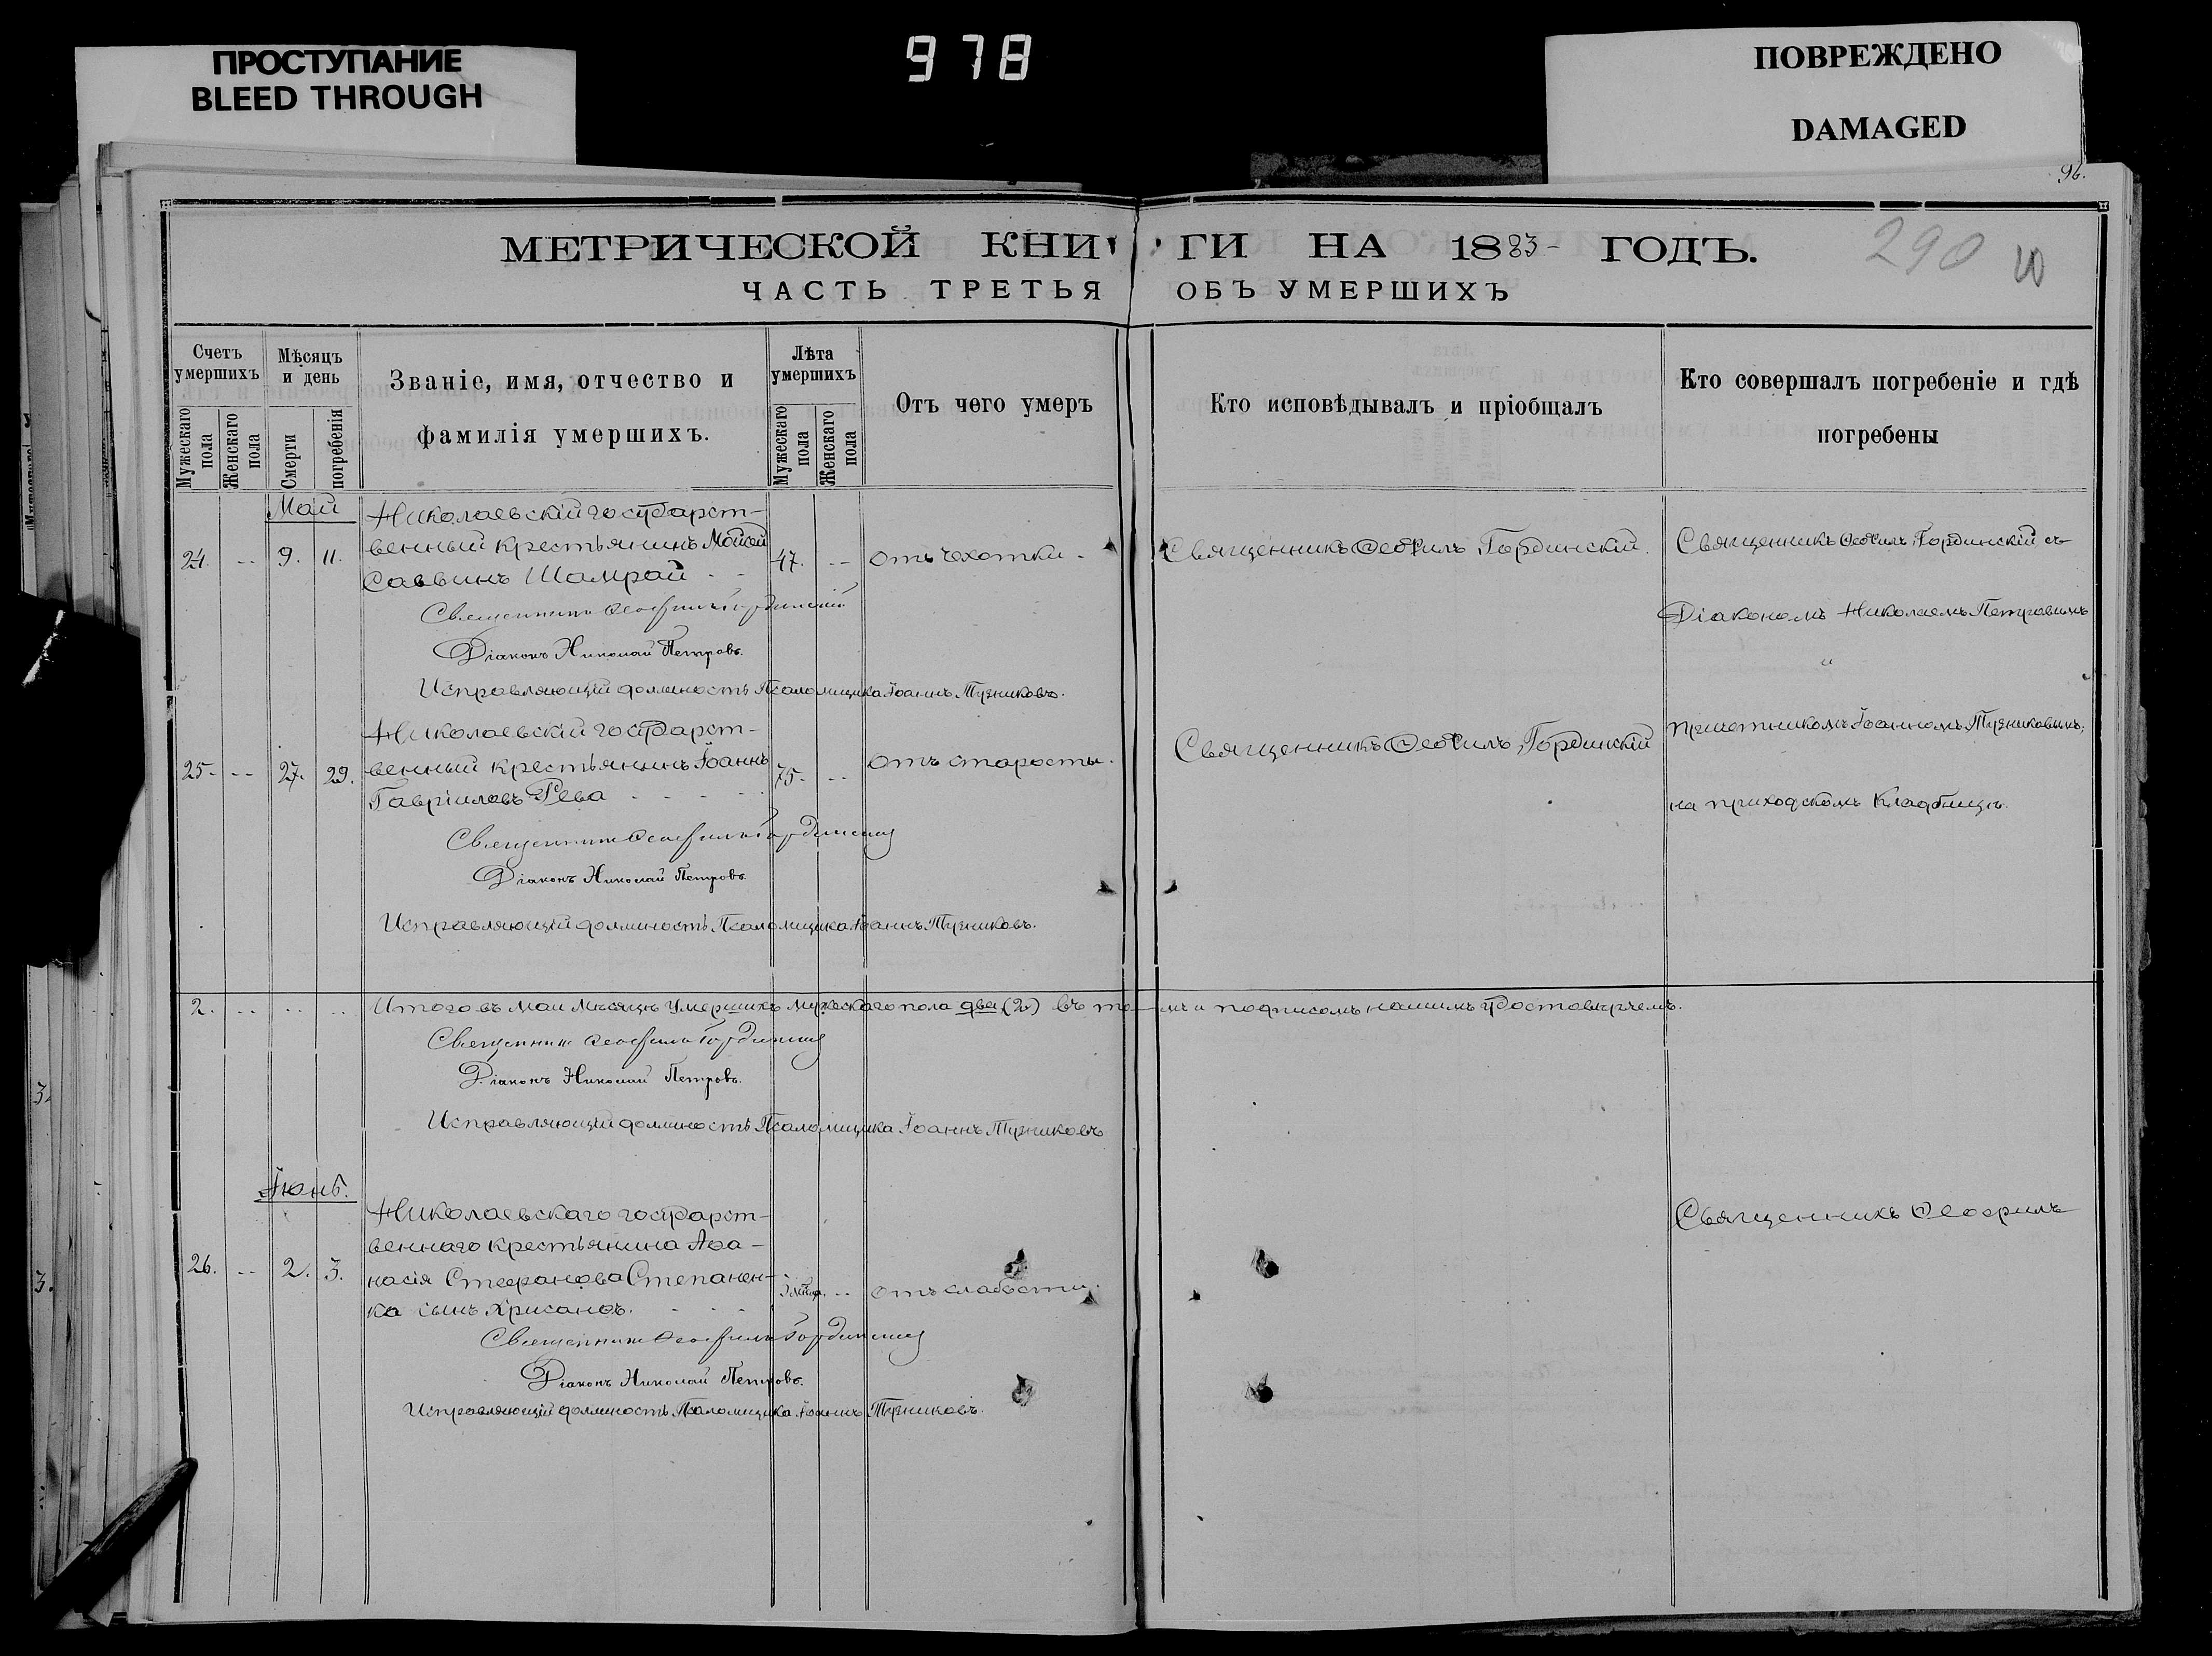 ПРОСТУПАНИЕ
BLEED THROUGH
978
ПОВРЕЖДЕНО
DAMAGED
96.
МЕТРИЧЕСКОЙ КНИГИ НА 1883 ГОДЪ.
290
ЧАСТЬ ТРЕТЬЯ ОБЪ УМЕРШИХЪ
Счетъ умершихъ
Мужескаго пола
Женскаго пола
Мѣсяцъ и день
Смерти
погребенія
Званіе, имя, отчество и
фамилія умершихъ.
Лѣта умершихъ
Мужескаго пола
Женскаго пола
Отъ чего умеръ
Кто исповѣдывалъ и пріобщалъ
Кто совершалъ погребеніе и гдѣ
погребены
Май
Николаевскій государст-
24. -- 9. 11. венный крестьянинъ Мойсей 47. -- Отъ чахотки - Священникъ Ѳеофилъ Гординскій. Священникъ Ѳеофилъ Гординскій съ
Саввинъ Шамрай - -
Священникъ Ѳеофилъ Гординскій
Діакономъ Николаемъ Петровымъ
Діаконъ Николай Петровъ.
"
Исправляющій должность Псаломщика Іоаннъ Тузниковъ.
Николаевскій государст-
Причетникомъ Іоанномъ Тузниковымъ,
25. -- 27. 29. венный крестьянинъ Іоаннъ 75. -- Отъ старости. Священникъ Ѳеофилъ Гординскій
Гавріиловъ Рева - - - -
на приходскомъ кладбищѣ.
Священникъ Ѳеофилъ Гординскій
Діаконъ Николай Петровъ.
Исправляющій должность Псаломщика Іоаннъ Тузниковъ.
2. -- -- -- Итого въ маи мѣсяцѣ умершихъ мужескаго пола два (2) въ то-мъ и подписомъ нашимъ удостовѣряемъ.
Священникъ Ѳеофилъ Гординскій
Діаконъ Николай Петровъ.
Исправляющій должность Псаломщика Іоаннъ Тузниковъ
Іюнь.
Николаевскаго государст-
Священникъ Ѳеофилъ
веннаго крестьянина Аѳа-
26. -- 2. 3. насія Стефанова Степанен-
ка сынъ Хрисанѳъ. - - - -- Отъ слабости.
Священникъ Ѳеофилъ Гординскій
Діаконъ Николай Петровъ.
Исправляющій должность Псаломщика Іоаннъ Тузниковъ.